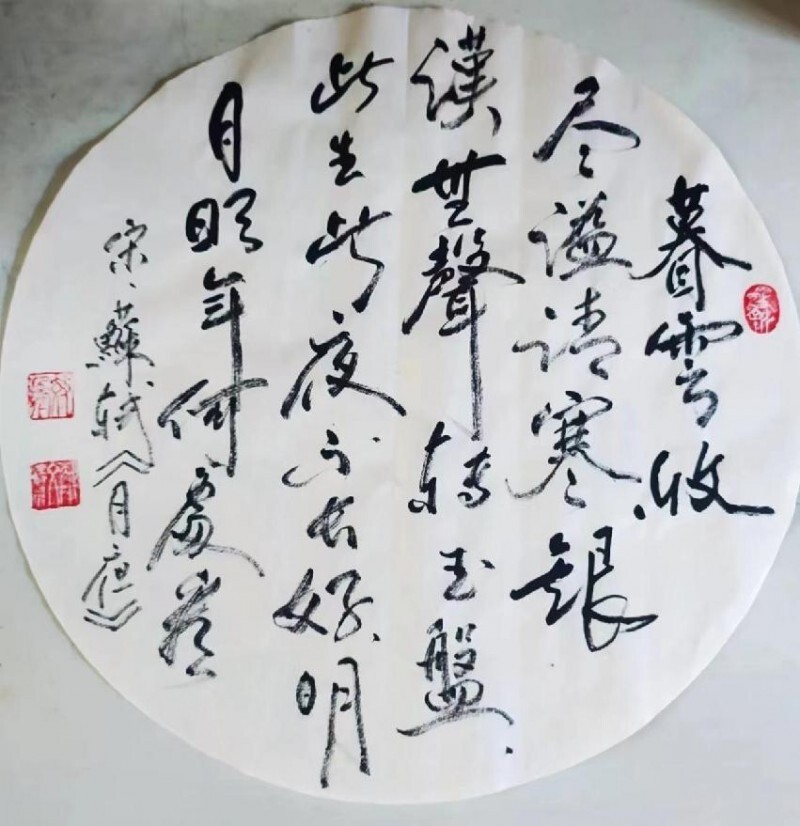 暮雲收
尽溢清寒銀
漢無聲轉玉盤
此生此夜不長好明
月明年何處看
宋、蘇軾《月》